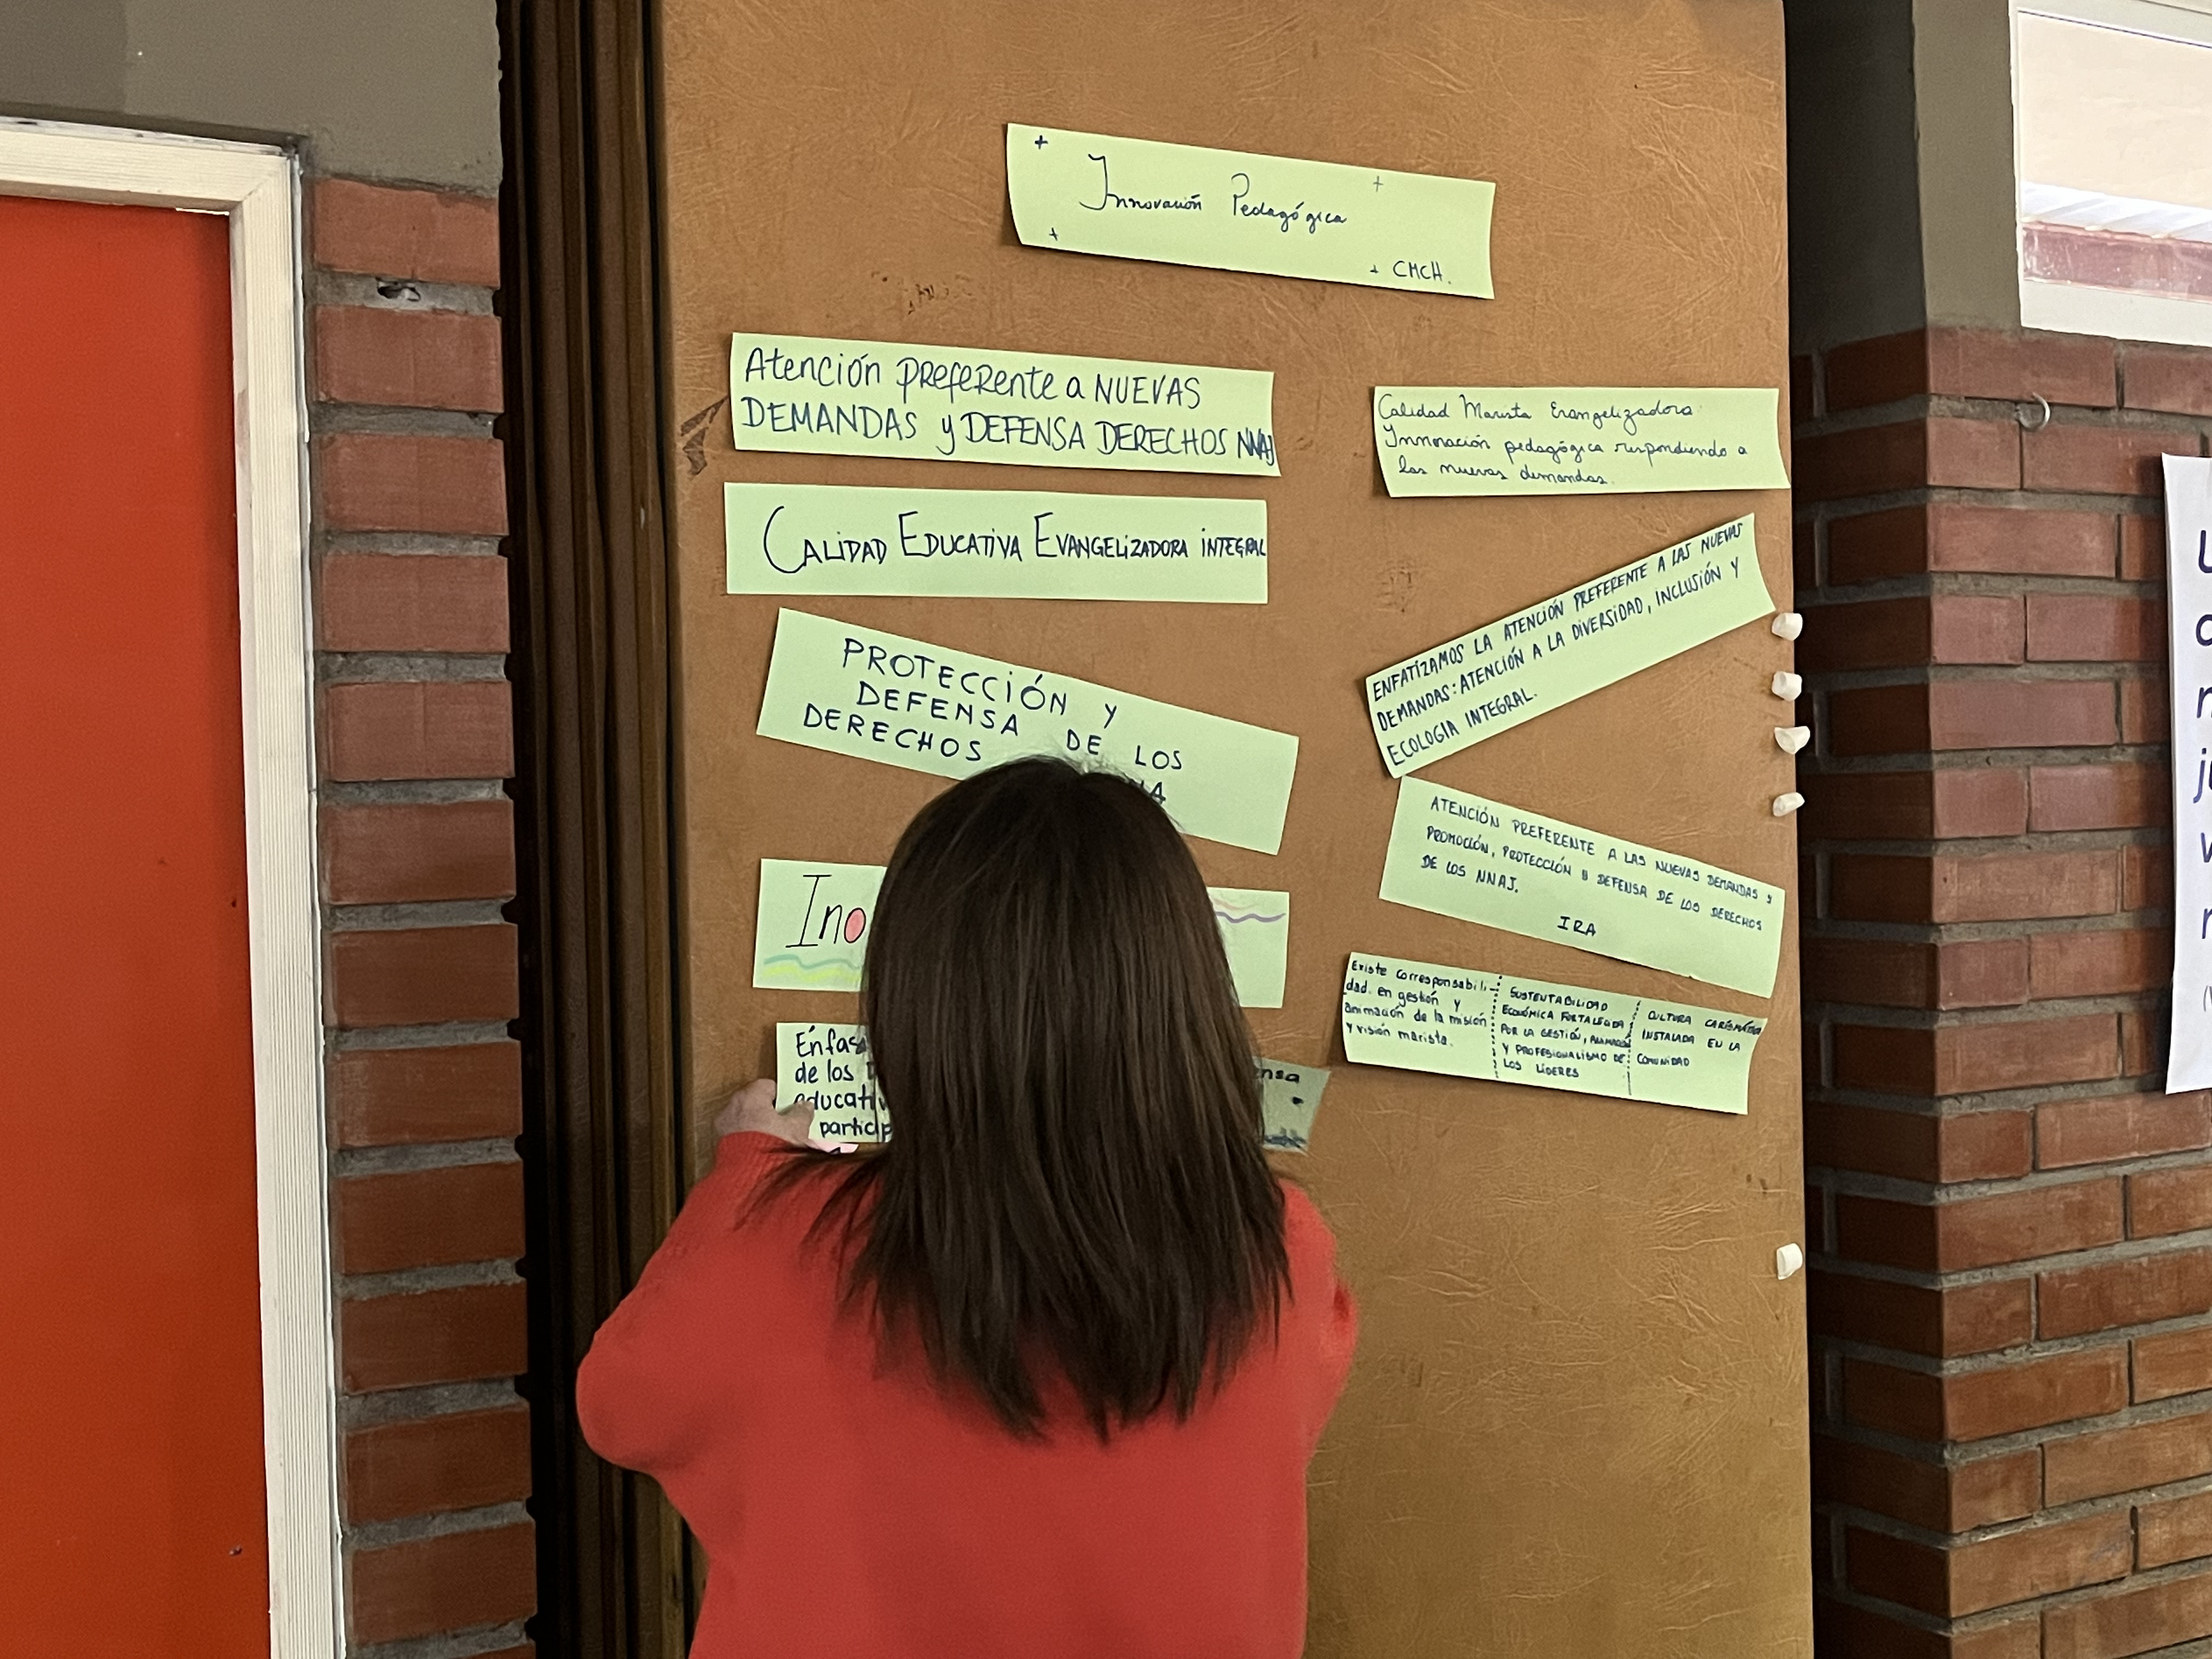 Innovación Pedagógica
CMCH.
Atención preferente a NUEVAS
DEMANDAS y DEFENSA DERECHOS NNAJ
CALIDAD EDUCATIVA EVANGELIZADORA INTEGRAL
PROTECCIÓN Y
DEFENSA DE LOS
DERECHOS
Enfas
de los
educati
particip
ensa
Calidad Marista Evangelizadora:
Innovación pedagógica respondiendo a
las nuevas demandas.
ENFATIZAMOS LA ATENCIÓN PREFERENTE A LAS NUEVAS
DEMANDAS: ATENCIÓN A LA DIVERSIDAD, INCLUSIÓN Y
ECOLOGIA INTEGRAL.
ATENCIÓN PREFERENTE A LAS NUEVAS DEMANDAS Y
PROMOCIÓN, PROTECCIÓN Y DEFENSA DE LOS DERECHOS
DE LOS NNAJ.
IRA
Existe corresponsabili-
dad en gestión y
animación de la misión
y visión marista.
SUSTENTABILIDAD
ECONÓMICA FORTALECIDA
POR LA GESTIÓN,
Y PROFESIONALISMO DE
LOS LÍDERES
CULTURA CARISMÁTICA
INSTALADA EN LA
COMUNIDAD